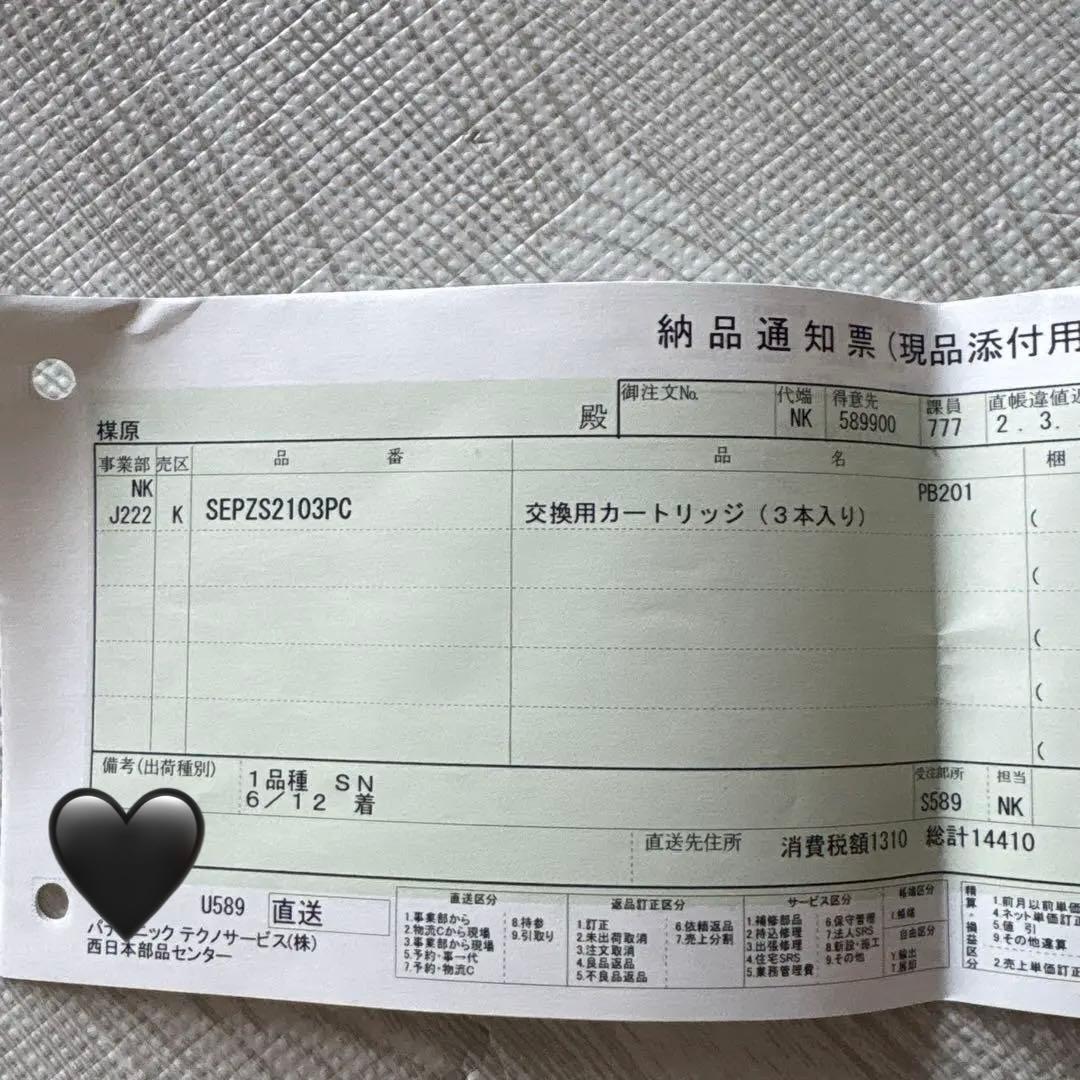 納品通知票(現品添付用
楳原 殿 御注文No. 代端 得意先 課員
NK 589900 777 2.3.
事業部 売区 品番 品名 梱
NK PB201
J222 K SEPZS2103PC 交換用カートリッジ(3本入り) (
(
(
(
(
備考(出荷種別) 1品種 SN 受注部所 担当
6/12 着 S589 NK
直送先住所 消費税額1310 総計14410
U589 直送
テクノサービス(株)
西日本部品センター
直送区分
1.事業部から 8.持参
2.物流Cから現場 9.引取り
3.事業部から現場
5.予約・事一代
7.予約・物流C
返品訂正区分
1.訂正 6.依頼返品
2.未出荷取消 7.売上分割
3.注文取消
4.良品返品
5.不良品返品
サービス区分
1.補修部品 6.保守管理
2.持込修理 7.法人SRS
3.出張修理 8.新設・施工
4.住宅SRS 9.その他
5.業務管理費
帳端区分
1.帳端
自由区分
Y.輸出
精算・損益区分
1.前月以前単価
4.ネット単価訂正
5.値引
9.その他違算
2.売上単価訂正